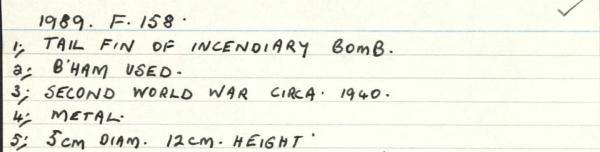 1989. F. 158.
1; TAIL FIN OF INCENDIARY BOMB.
2; B'HAM USED.
3; SECOND WORLD WAR CIRCA. 1940.
4; METAL.
5; 5cm DIAM. 12cm. HEIGHT.